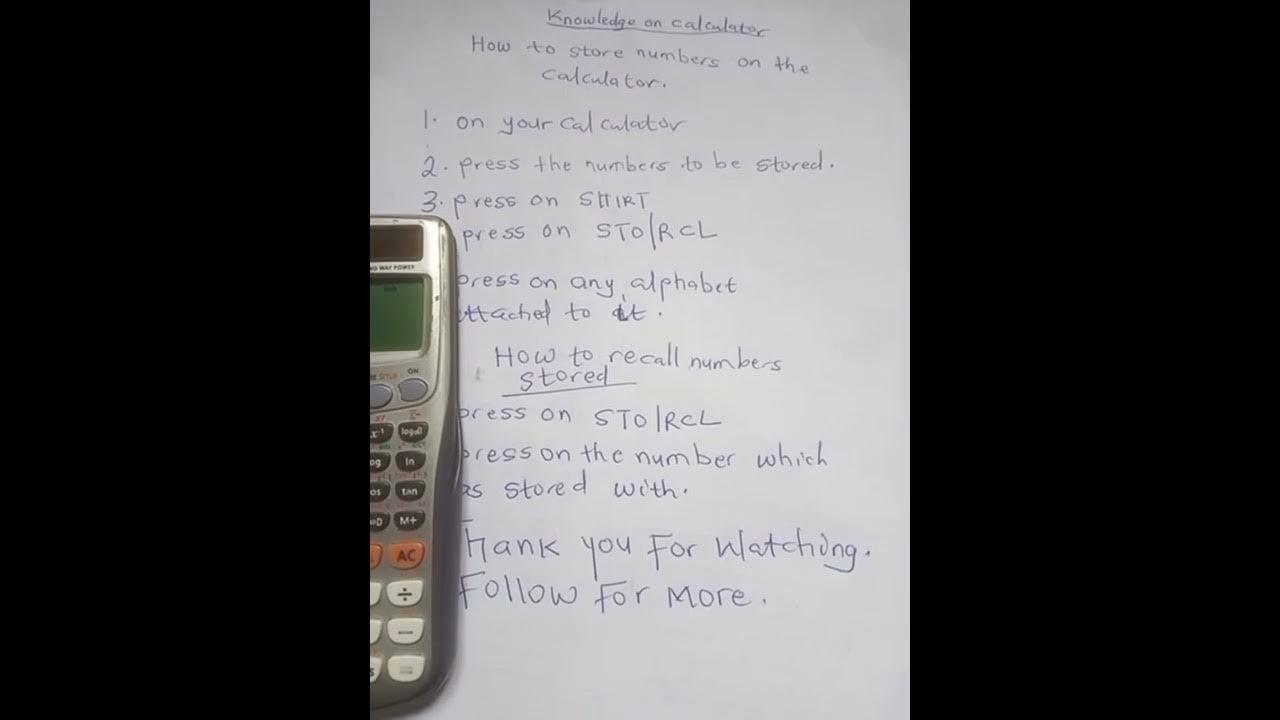 Knowledge on calculator
How to store numbers on the
calculator.
1. on your calculator
2. press the numbers to be stored.
3. press on SHIRT
press on STO/RCL
press on any alphabet
attached to it.
How to recall numbers
stored
press on STO/RCL
press on the number which
as stored with.
Thank you For Watching.
Follow For More.
WAY POWER
SETUP
ON
x⁻¹
log
ln
tan
M+
AC
÷
−
=